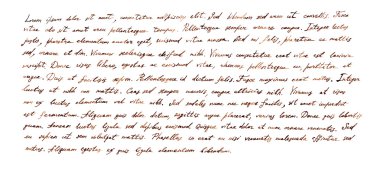 Lorem ipsum dolor sit amet, consectetur adipiscing elit. Sed bibendum sed sem ut convallis. Fusce
vitae dui sit amet sem pellentesque tempus. Pellentesque semper ornare congue. Integer lacus
justo, pharetra elementum auctor eget, euismod vitae. Sed in felis, pharetra in mattis
sed, ornare at dui. Vivamus scelerisque eleifend nibh. Vivamus consectetur erat vitae est
suscipit. Donec risus libero, egestas ac euismod vitae, viverra pellentesque in, porttitor et
augue. Duis ut facilisis sapien. Pellentesque id dictum felis. Fusce Integer
luctus at nibh in mattis. Cras sed semper mauris, congue ultricies nibh. Vivamus at risus
non ex luctus elementum vel vitae nibh. Sed sodales nunc nec magna facilis, sit amet imperdiet
est fermentum. Aliquam quis dolor dictum, sagittis augue placerat, varius lorem. Donec quis lobortis
quam. Aenean luctus ligula sed dapibus euismod. Quisque vitae dolor id nunc ornare venenatis. Sed
eu sapien ut sem volutpat mattis. Phasellus in erat ac nisi venenatis malesuada efficitur sed
metus. Aliquam egestas ex quis ligula elementum bibendum.